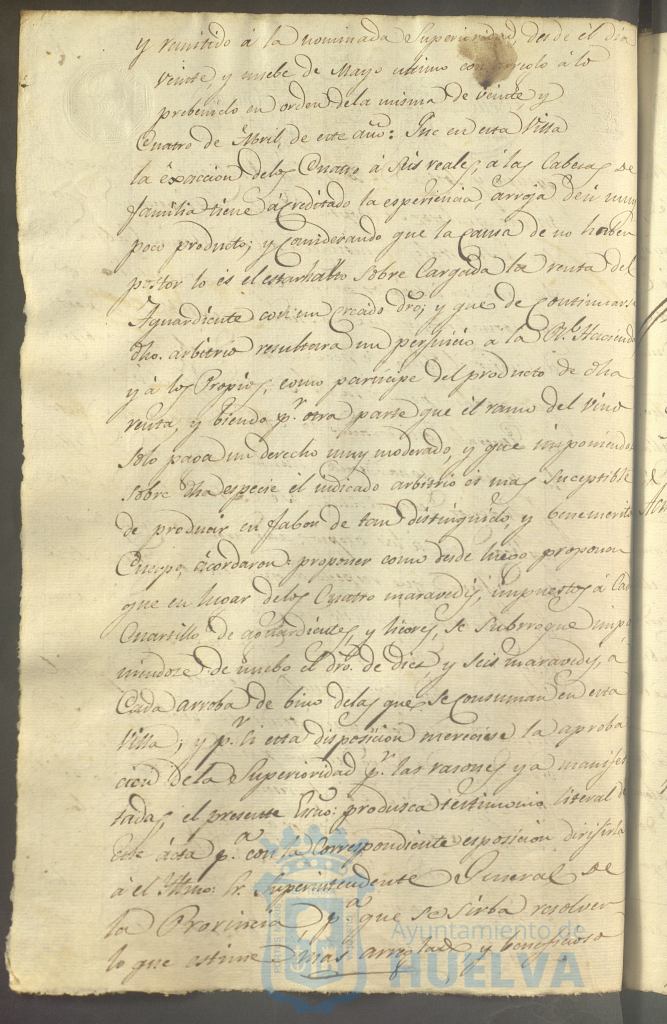 y remitido á la nominada Superioridad, desde el dia
veinte, y nuebe de Mayo ultimo con arreglo á lo
prebenido en orden dela misma de veinte, y
Cuatro de Abril, de este año: Que en esta Villa
la exaccion delos Cuatro á Seis reales, á las Cabesas de
familia tiene ácreditado la esperiencia, arroja de si muy
poco producto; y Considerando que la Causa de no haber
postor lo es el estar Sobre Cargada la renta del
Aguardiente con un Creado dro; y que de Continuarse
dho. arbitrio resultara un perjuicio a la Rl. Hacienda
y á los Propios, como participe del producto de dha
renta, y biendo pr. otra parte que él ramo del vino
Solo paga un derecho muy moderado, y que imponiendo
sobre dha especie él indicado arbitrio es mas Suceptible
de producir en fabor de tan distinguido, y benemerito
Cuerpo, ácordaron: proponer como desde luego proponen
que en lugar delos Cuatro maravedis, impuestos á Cada
Cuartillo de aguardientes, y licores, se Subrrogue impo
niendose de nuebo el dro. de dies y seis maravedis á
Cada arroba de bino delas que se Consuman en esta
Villa; y pr. si esta disposicion mereciese la aproba
cion de la Superioridad pr. las rasones ya manifes
tadas, el presente Esno: produsca testimonio literal de
Este ácta pa. con la Correspondiente esposicion dirijirla
á el Ittmo: Sr. Superintendente General de
la Provincia, pa. que se sirba resolver
lo que estime mas arreglado y beneficioso
Ayuntamiento de
HUELVA